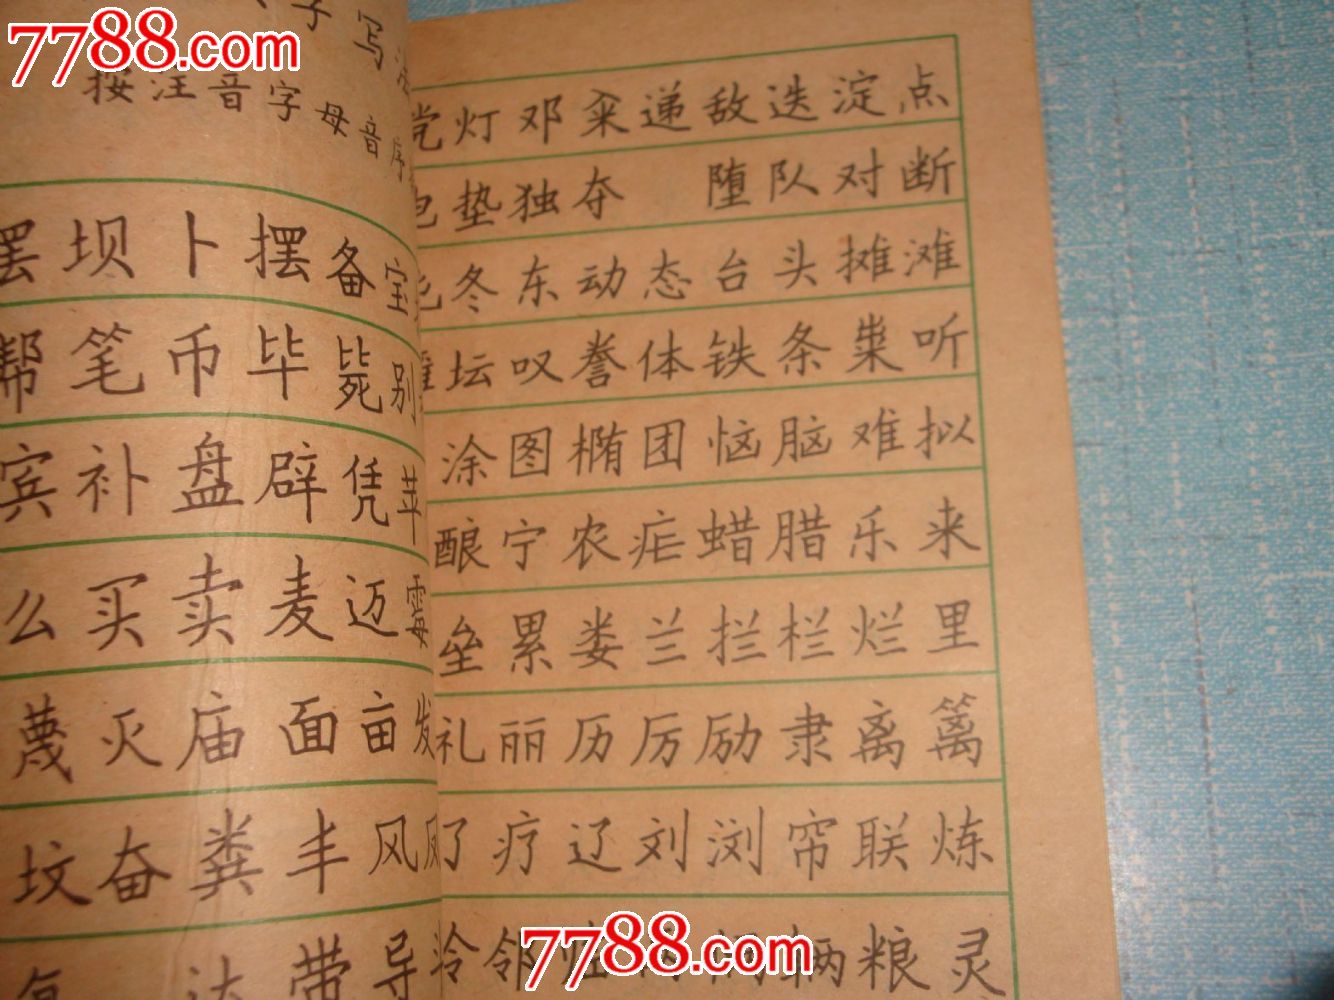 7788.com
子写法
按注音字母音序
罢坝卜摆备宝
帮笔币毕毙别
宾补盘辟凭苹
么买卖麦迈霉
蔑灭庙面亩发
坟奋粪丰风凤
复达带导
党灯邓籴递敌迭淀点
电垫独夺 堕队对断
冬东动态台头摊滩
瘫坛叹誊体铁条粜听
涂图椭团恼脑难拟
酿宁农疟蜡腊乐来
垒累娄兰拦栏烂里
礼丽历厉励隶离篱
了疗辽刘浏帘联炼
邻俩辆粮灵
7788.com